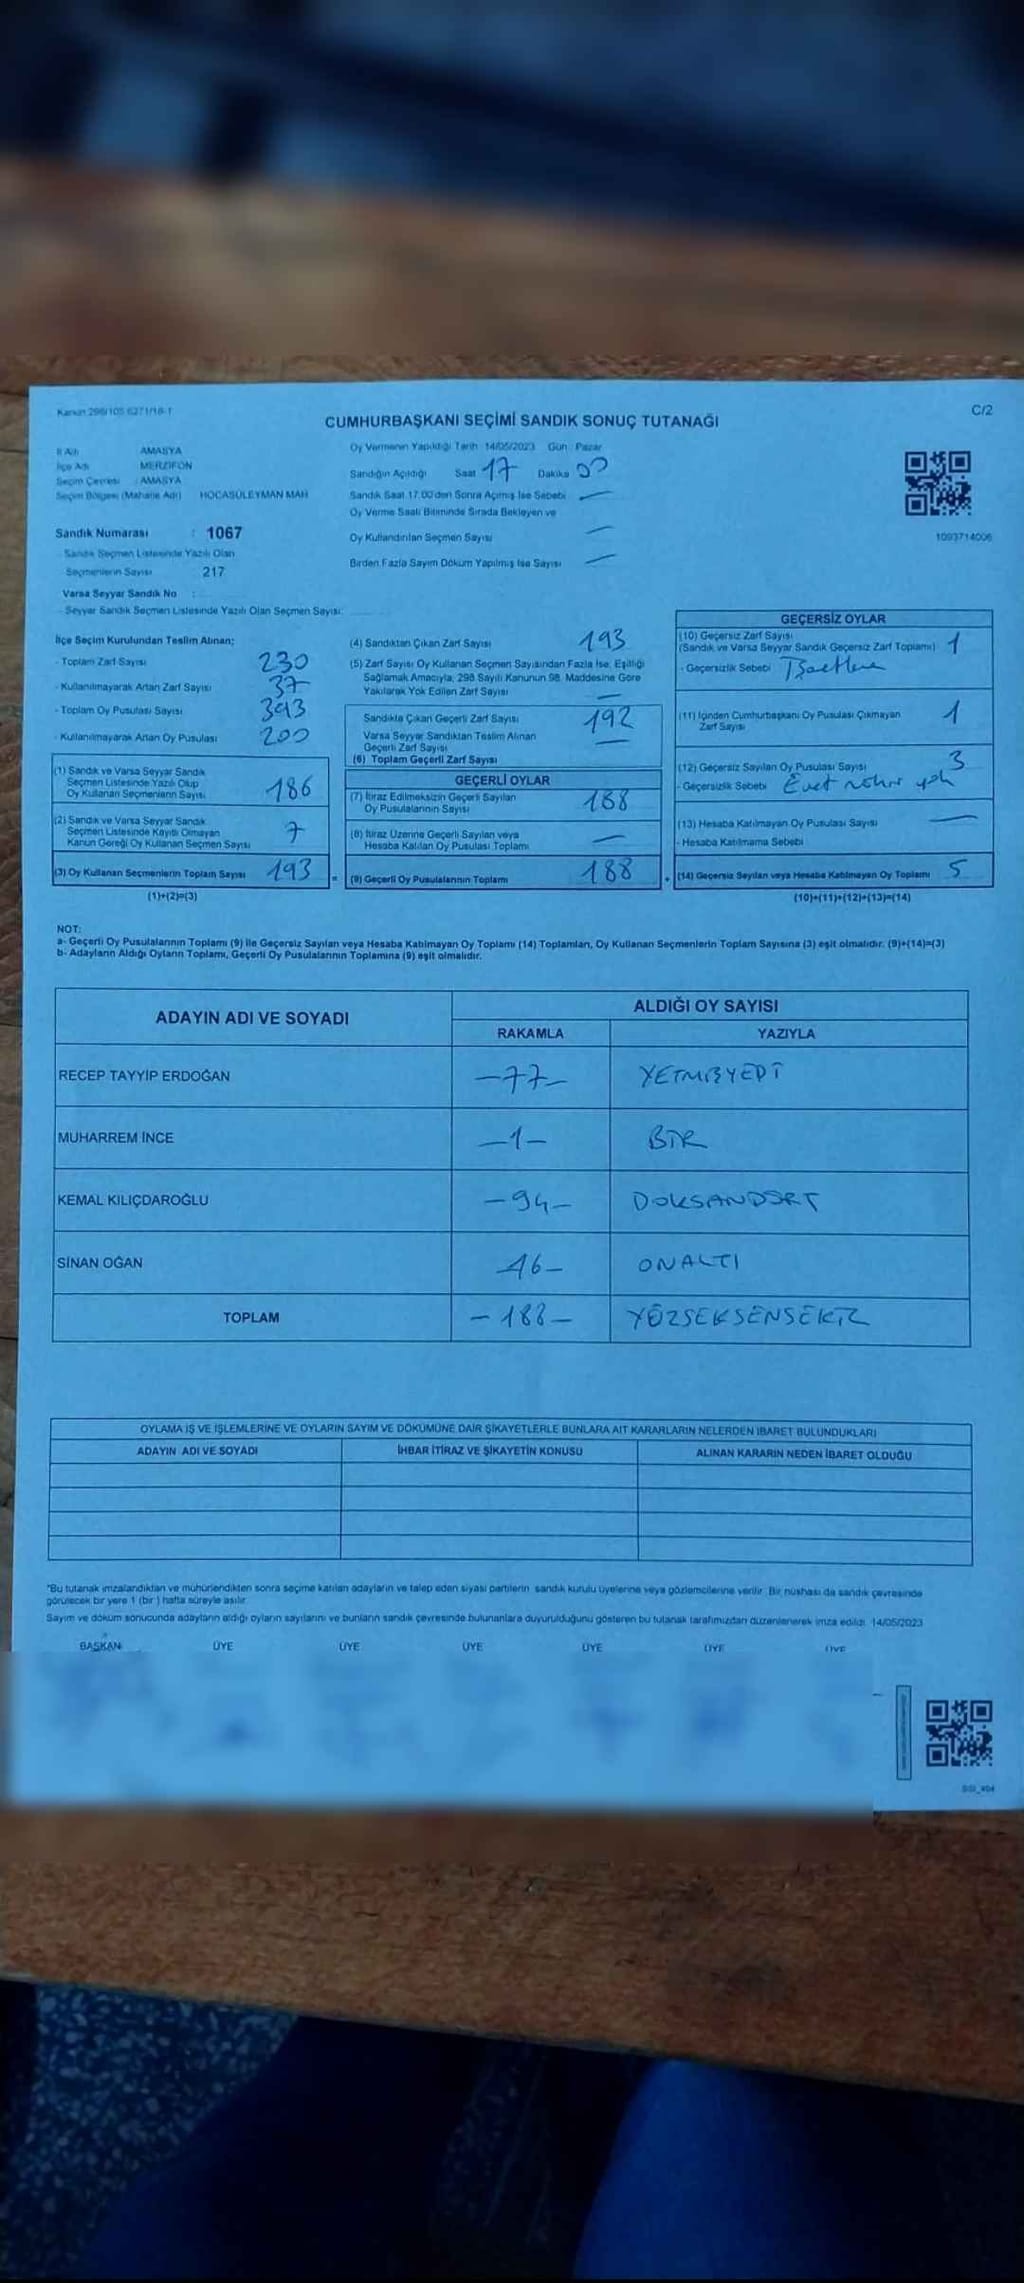 Kanun 298/105 6271/18-1
C/2
CUMHURBAŞKANI SEÇİMİ SANDIK SONUÇ TUTANAĞI
İl Adı AMASYA
İlçe Adı MERZİFON
Seçim Çevresi : AMASYA
Seçim Bölgesi (Mahalle Adı) HOCASÜLEYMAN MAH
Sandık Numarası : 1067
Sandık Seçmen Listesinde Yazılı Olan
Seçmenlerin Sayısı 217
Varsa Seyyar Sandık No :
- Seyyar Sandık Seçmen Listesinde Yazılı Olan Seçmen Sayısı:
Oy Vermenin Yapıldığı Tarih 14/05/2023 Gün : Pazar
Sandığın Açıldığı Saat 17 Dakika 00
Sandık Saat 17.00'den Sonra Açılmış İse Sebebi —
Oy Verme Saati Bitiminde Sırada Bekleyen ve
Oy Kullandırılan Seçmen Sayısı —
Birden Fazla Sayım Döküm Yapılmış İse Sayısı —
1093714006
İlçe Seçim Kurulundan Teslim Alınan;
- Toplam Zarf Sayısı 230
- Kullanılmayarak Artan Zarf Sayısı 37
- Toplam Oy Pusulası Sayısı 393
- Kullanılmayarak Artan Oy Pusulası 200
(1) Sandık ve Varsa Seyyar Sandık
Seçmen Listesinde Yazılı Olup
Oy Kullanan Seçmenlerin Sayısı 186
(2) Sandık ve Varsa Seyyar Sandık
Seçmen Listesinde Kayıtlı Olmayan
Kanun Gereği Oy Kullanan Seçmen Sayısı 7
(3) Oy Kullanan Seçmenlerin Toplam Sayısı 193
(1)+(2)=(3)
(4) Sandıktan Çıkan Zarf Sayısı 193
(5) Zarf Sayısı Oy Kullanan Seçmen Sayısından Fazla İse, Eşitliği
Sağlamak Amacıyla, 298 Sayılı Kanunun 98. Maddesine Göre
Yakılarak Yok Edilen Zarf Sayısı —
Sandıkta Çıkan Geçerli Zarf Sayısı 192
Varsa Seyyar Sandıktan Teslim Alınan
Geçerli Zarf Sayısı —
(6) Toplam Geçerli Zarf Sayısı
GEÇERLİ OYLAR
(7) İtiraz Edilmeksizin Geçerli Sayılan
Oy Pusulalarının Sayısı 188
(8) İtiraz Üzerine Geçerli Sayılan veya
Hesaba Katılan Oy Pusulası Toplamı —
= (9) Geçerli Oy Pusulalarının Toplamı 188
GEÇERSİZ OYLAR
(10) Geçersiz Zarf Sayısı
(Sandık ve Varsa Seyyar Sandık Geçersiz Zarf Toplamı) 1
- Geçersizlik Sebebi
(11) İçinden Cumhurbaşkanı Oy Pusulası Çıkmayan
Zarf Sayısı 1
(12) Geçersiz Sayılan Oy Pusulası Sayısı 3
- Geçersizlik Sebebi Evet yok
(13) Hesaba Katılmayan Oy Pusulası Sayısı —
- Hesaba Katılmama Sebebi
+ (14) Geçersiz Sayılan veya Hesaba Katılmayan Oy Toplamı 5
(10)+(11)+(12)+(13)=(14)
NOT:
a- Geçerli Oy Pusulalarının Toplamı (9) ile Geçersiz Sayılan veya Hesaba Katılmayan Oy Toplamı (14) Toplamları, Oy Kullanan Seçmenlerin Toplam Sayısına (3) eşit olmalıdır. (9)+(14)=(3)
b- Adayların Aldığı Oyların Toplamı, Geçerli Oy Pusulalarının Toplamına (9) eşit olmalıdır.
ADAYIN ADI VE SOYADI ALDIĞI OY SAYISI
RAKAMLA YAZIYLA
RECEP TAYYİP ERDOĞAN —77— YETMİŞYEDİ
MUHARREM İNCE —1— BİR
KEMAL KILIÇDAROĞLU —94— DOKSANDÖRT
SİNAN OĞAN 16— ONALTI
TOPLAM —188— YÜZSEKSENSEKİZ
OYLAMA İŞ VE İŞLEMLERİNE VE OYLARIN SAYIM VE DÖKÜMÜNE DAİR ŞİKAYETLERLE BUNLARA AİT KARARLARIN NELERDEN İBARET BULUNDUKLARI
ADAYIN ADI VE SOYADI İHBAR İTİRAZ VE ŞİKAYETİN KONUSU ALINAN KARARIN NEDEN İBARET OLDUĞU
*Bu tutanak imzalandıktan ve mühürlendikten sonra seçime katılan adayların ve talep eden siyasi partilerin sandık kurulu üyelerine veya gözlemcilerine verilir. Bir nüshası da sandık çevresinde
görülecek bir yere 1 (bir) hafta süreyle asılır.
Sayım ve döküm sonucunda adayların aldığı oyların sayılarını ve bunların sandık çevresinde bulunanlara duyurulduğunu gösteren bu tutanak tarafımızdan düzenlenerek imza edildi. 14/05/2023
BAŞKAN ÜYE ÜYE ÜYE ÜYE ÜYE ÜYE